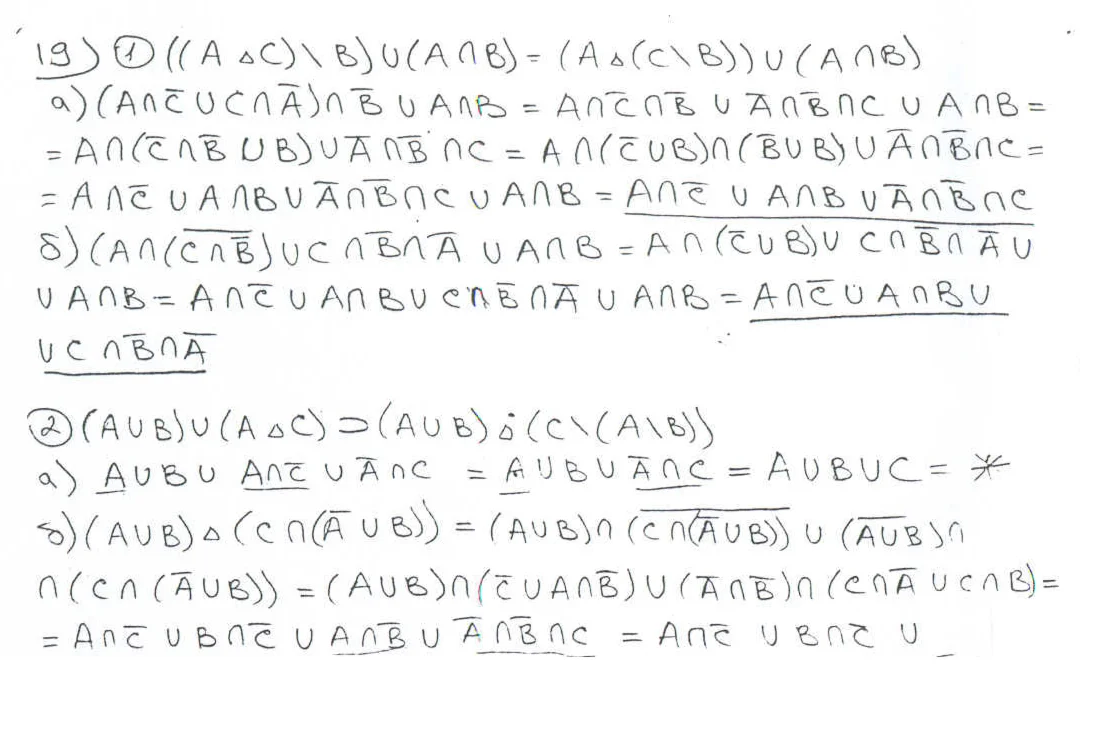 19) ① ((A △ C) \ B) ∪ (A ∩ B) = (A △ (C \ B)) ∪ (A ∩ B)
а) (A ∩ C̅ ∪ C ∩ A̅) ∩ B̅ ∪ A ∩ B = A ∩ C̅ ∩ B̅ ∪ A̅ ∩ B̅ ∩ C ∪ A ∩ B =
= A ∩ (C̅ ∩ B̅ ∪ B) ∪ A̅ ∩ B̅ ∩ C = A ∩ (C̅ ∪ B) ∩ (B̅ ∪ B) ∪ A̅ ∩ B̅ ∩ C =
= A ∩ C̅ ∪ A ∩ B ∪ A̅ ∩ B̅ ∩ C ∪ A ∩ B = A ∩ C̅ ∪ A ∩ B ∪ A̅ ∩ B̅ ∩ C
б) (A ∩ (C̅ ̅∩̅ ̅B̅̅) ∪ C ∩ B̅ ∩ A̅ ∪ A ∩ B = A ∩ (C̅ ∪ B) ∪ C ∩ B̅ ∩ A̅ ∪
∪ A ∩ B = A ∩ C̅ ∪ A ∩ B ∪ C ∩ B̅ ∩ A̅ ∪ A ∩ B = A ∩ C̅ ∪ A ∩ B ∪
∪ C ∩ B̅ ∩ A̅
② (A ∪ B) ∪ (A △ C) ⊃ (A ∪ B) △ (C \ (A \ B))
а) A ∪ B ∪ A ∩ C̅ ∪ A̅ ∩ C = A ∪ B ∪ A̅ ∩ C = A ∪ B ∪ C = *
б) (A ∪ B) △ (C ∩ (A̅ ∪ B)) = (A ∪ B) ∩ (C̅ ̅∩̅ ̅(̅A̅̅ ̅∪̅ ̅B̅)̅) ∪ (A̅ ̅∪̅ ̅B̅) ∩
∩ (C ∩ (A̅ ∪ B)) = (A ∪ B) ∩ (C̅ ∪ A ∩ B̅) ∪ (A̅ ∩ B̅) ∩ (C ∩ A̅ ∪ C ∩ B) =
= A ∩ C̅ ∪ B ∩ C̅ ∪ A ∩ B̅ ∪ A̅ ∩ B̅ ∩ C = A ∩ C̅ ∪ B ∩ C̅ ∪